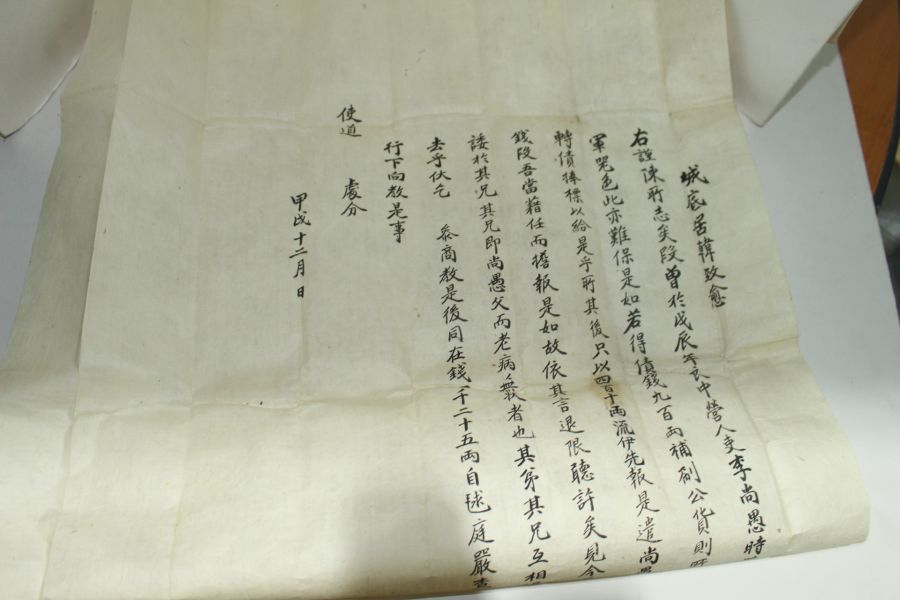 城底居韓致愈
右謹陳所志矣段曾於戊辰年良中營人吏李尙愚時
軍器色此亦難保是如若得債錢九百兩補劀公貨則
轉債捧標以給是乎所其後只以四百十兩流伊先報是遣尙
錢段吾當藉任而擔報是如故依其言退限聽許矣見今
諉於其兄其兄即尙愚父而老病無敎者也其弟其兄互相
去乎伏乞 叅商敎是後同在錢一千二十五兩自毬庭嚴
行下向敎是事
使道 處分
甲戌十二月 日